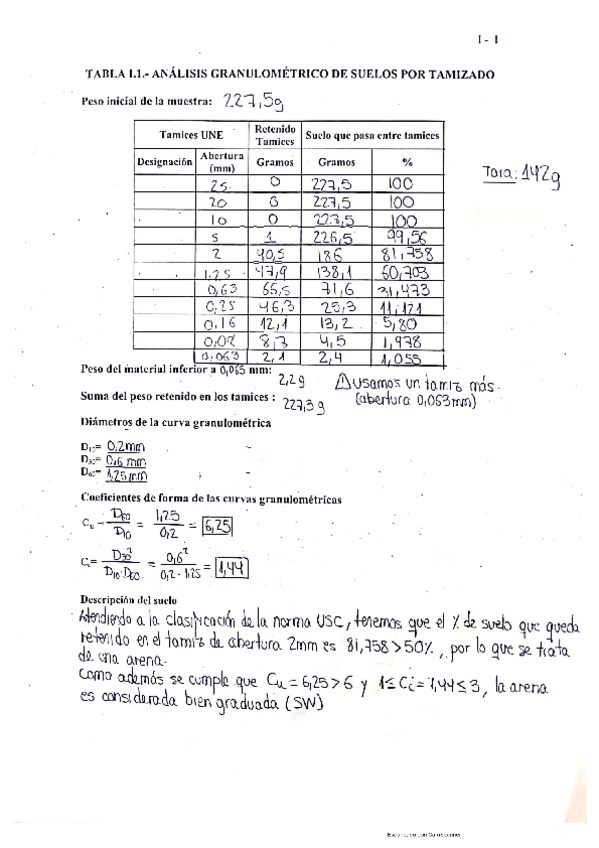 I - 1
TABLA I.1.- ANÁLISIS GRANULOMÉTRICO DE SUELOS POR TAMIZADO
Peso inicial de la muestra: 227,5g
Tamices UNE Retenido Tamices Suelo que pasa entre tamices
Designación Abertura (mm) Gramos Gramos %
Tara: 142g
25 0 227,5 100
20 0 227,5 100
10 0 227,5 100
5 1 226,5 99,56
2 40,5 186 81,758
1,25 47,9 138,1 60,703
0,63 66,5 71,6 31,473
0,25 46,3 25,3 11,121
0,16 12,1 13,2 5,80
0,08 8,7 4,5 1,978
0,063 2,1 2,4 1,055
Peso del material inferior a 0,063 mm: 2,2 g
⚠ Usamos un tamiz más
(abertura 0,063mm)
Suma del peso retenido en los tamices : 227,3 g
Diámetros de la curva granulométrica
D₁₀= 0.2mm
D₃₀= 0,6 mm
D₆₀= 1,25 mm
Coeficientes de forma de las curvas granulométricas
Cᵤ = D₆₀/D₁₀ = 1,25/0,2 = 6,25
C = D₃₀²/D₁₀·D₆₀ = 0,6²/0,2·1,25 = 1,44
Descripción del suelo
Atendiendo a la clasificación de la norma USC, tenemos que el % de suelo que queda
retenido en el tamiz de abertura 2mm es 81,758>50%, por lo que se trata
de una arena.
Como además se cumple que Cu = 6,25>6 y 1≤Cc=1,44≤3, la arena
es considerada bien graduada (SW)
Escaneado con CamScanner